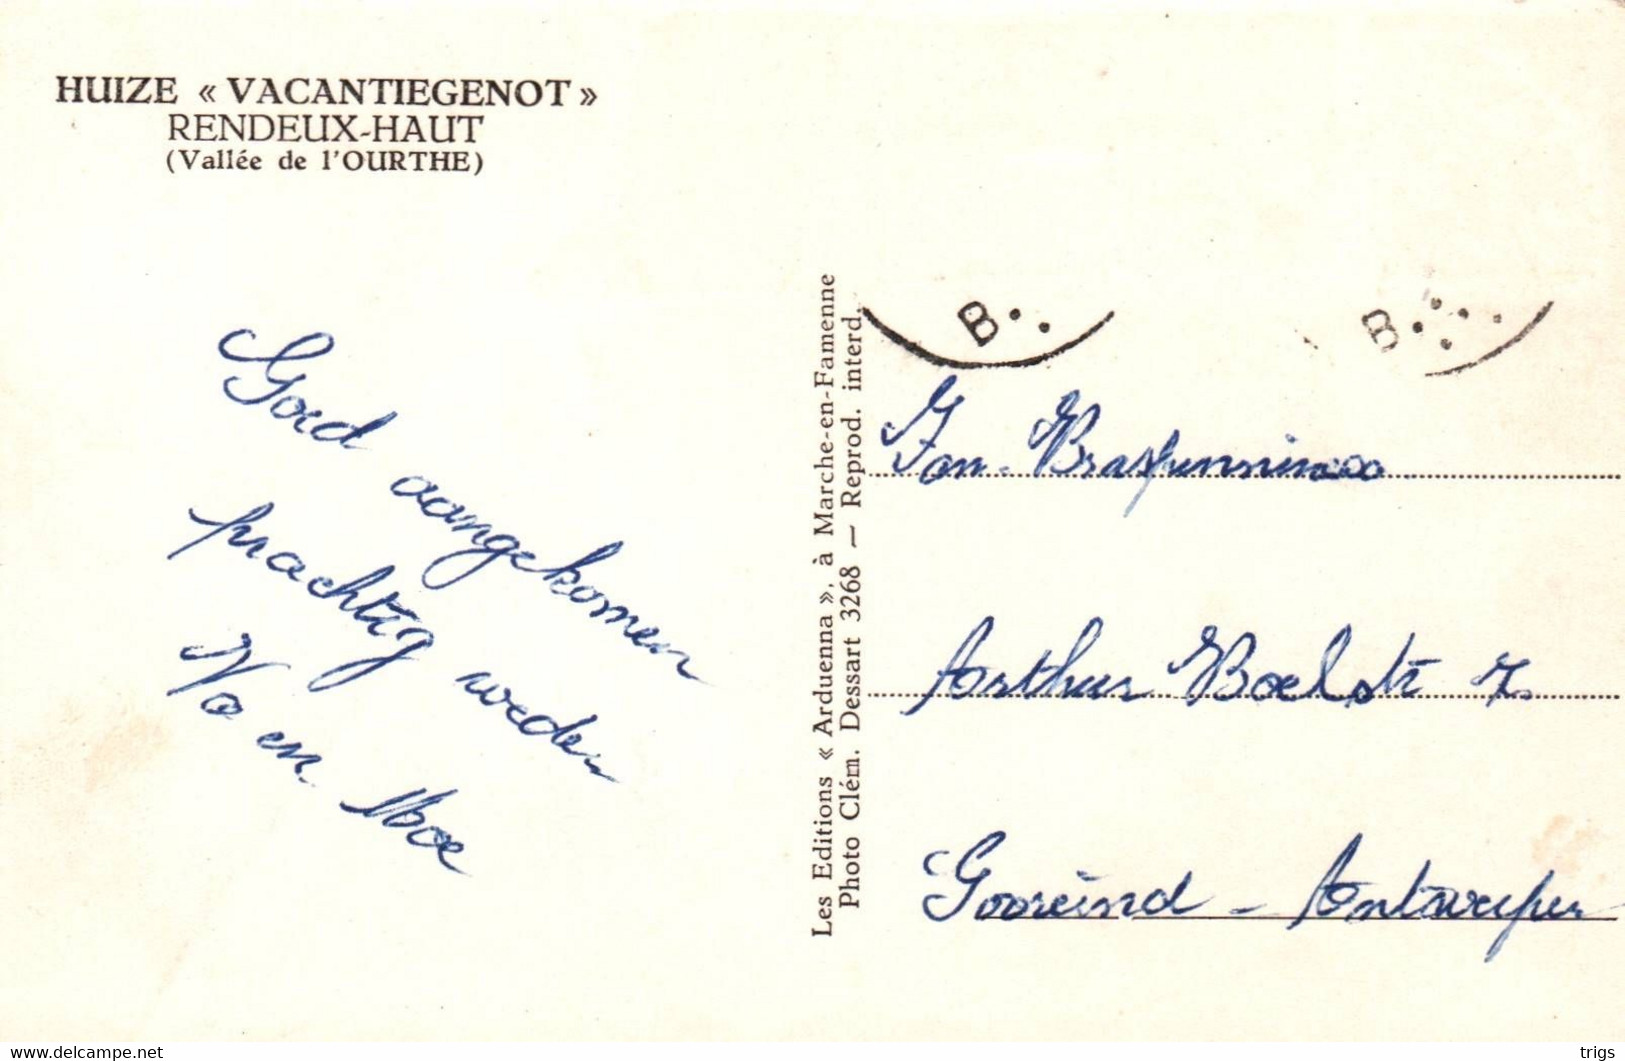 HUIZE « VACANTIEGENOT »
RENDEUX-HAUT
(Vallée de l'OURTHE)
Goed aangekomen
prachtig weder
Va en Moe
Les Editions « Arduenna », à Marche-en-Famenne
Photo Clém. Dessart 3268 — Reprod. interd.
B
B
Fam.
Arthur Boelstr 7.
Gooreind - Antwerpen
www.delcampe.net
trigs